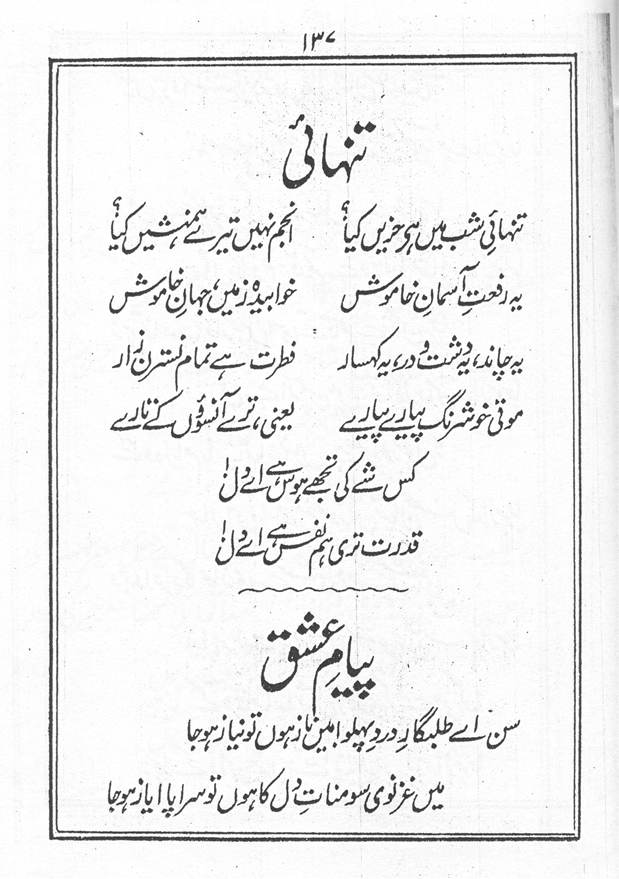 ۱۳۷
تنہائی
تنہائیِ شب میں ہے حزیں کیا؟ انجم نہیں تیرے ہمنشیں کیا؟
یہ رفعتِ آسمانِ خاموش خوابیدہ زمیں، جہانِ خاموش
یہ چاند، یہ دشت و در، یہ کہسار فطرت ہے تمام نسترن زار
موتی خوشرنگ پیارے پیارے یعنی، ترے آنسوؤں کے تارے
کس شے کی تجھے ہوس ہے اے دل!
قدرت تری ہم نفس ہے اے دل!
پیامِ عشق
سن اے طلبگارِ دردِ پہلو! میں ناز ہوں تو نیاز ہوجا
میں غزنوی سومناتِ دل کا ہوں تو سراپا ایاز ہوجا